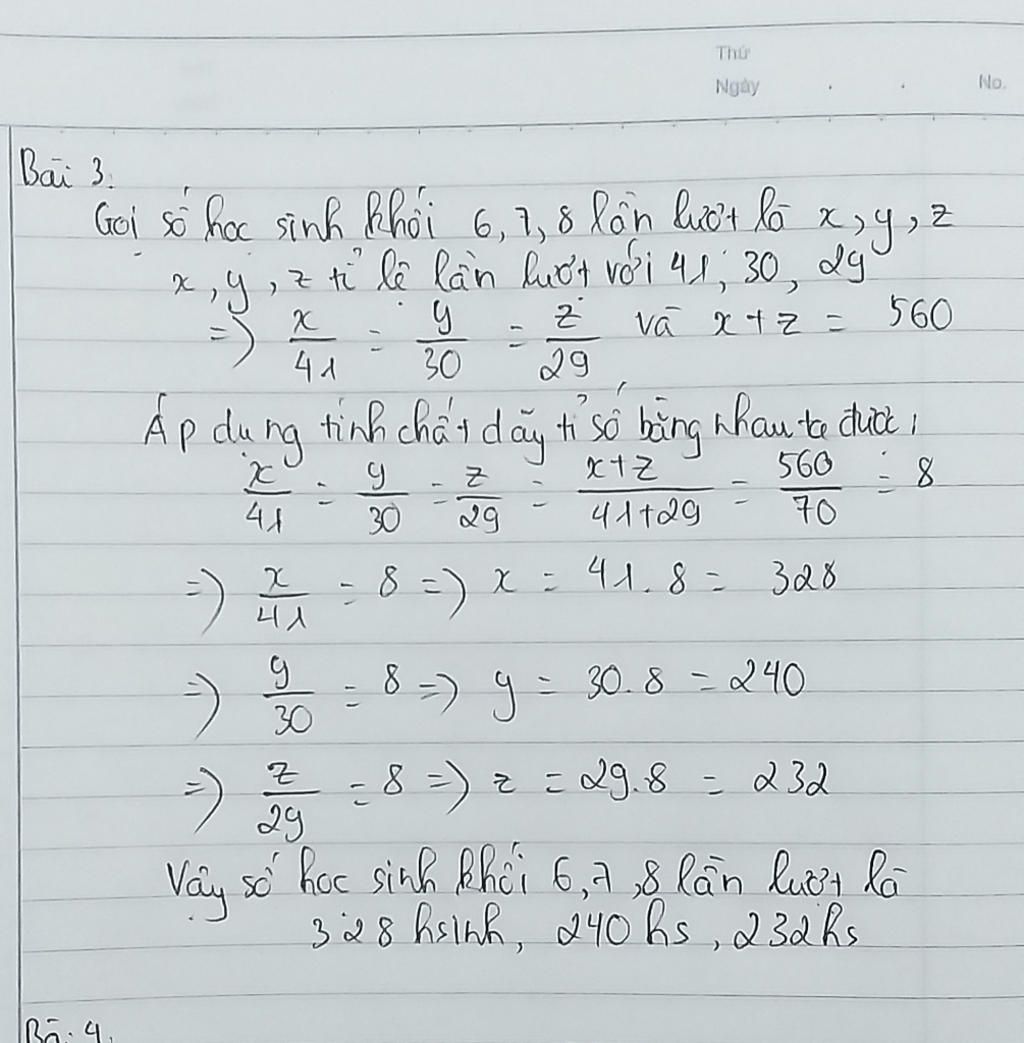 Thứ
Ngày . . No.
Bài 3.
Gọi số học sinh khối 6, 7, 8 lần lượt là x, y, z
x, y, z tỉ lệ lần lượt với 41, 30, 29
=> x/41 = y/30 = z/29 và x + z = 560
Áp dụng tính chất dãy tỉ số bằng nhau ta được,
x/41 = y/30 = z/29 = (x+z)/(41+29) = 560/70 = 8
=> x/41 = 8 => x = 41.8 = 328
=> y/30 = 8 => y = 30.8 = 240
=> z/29 = 8 => z = 29.8 = 232
Vậy số học sinh khối 6, 7, 8 lần lượt là
328 hsinh, 240 hs, 232 hs
Bài 4.